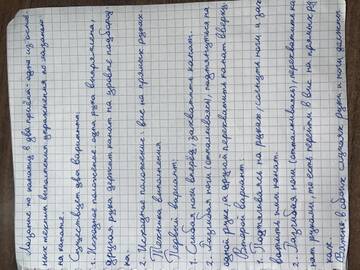 Лазанье по канату в два приёма - одна из основ
ных техник выполнения упражнения по лазанью
на канате.
Существует два варианта:
1. Исходное положение: одна рука выпрямлена,
другая рука держит канат на уровне подбород
ка.
2. Исходное положение: вис на прямых руках.
Техника выполнения
Первый вариант:
1. Сгибая ноги вперёд, захватить канат.
2. Разгибая ноги (отталкиваясь), подтянуться на
одной руке, а другой перехватить канат вверху.
Второй вариант:
1. Подтягиваясь на руках, согнуть ноги и зах
ватить ими канат.
2. Разгибая ноги (отталкиваясь), перехватить ка
нат руками, то есть перейти в вис на прямых ру
ках.
Важно в обоих случаях руки и ноги должны